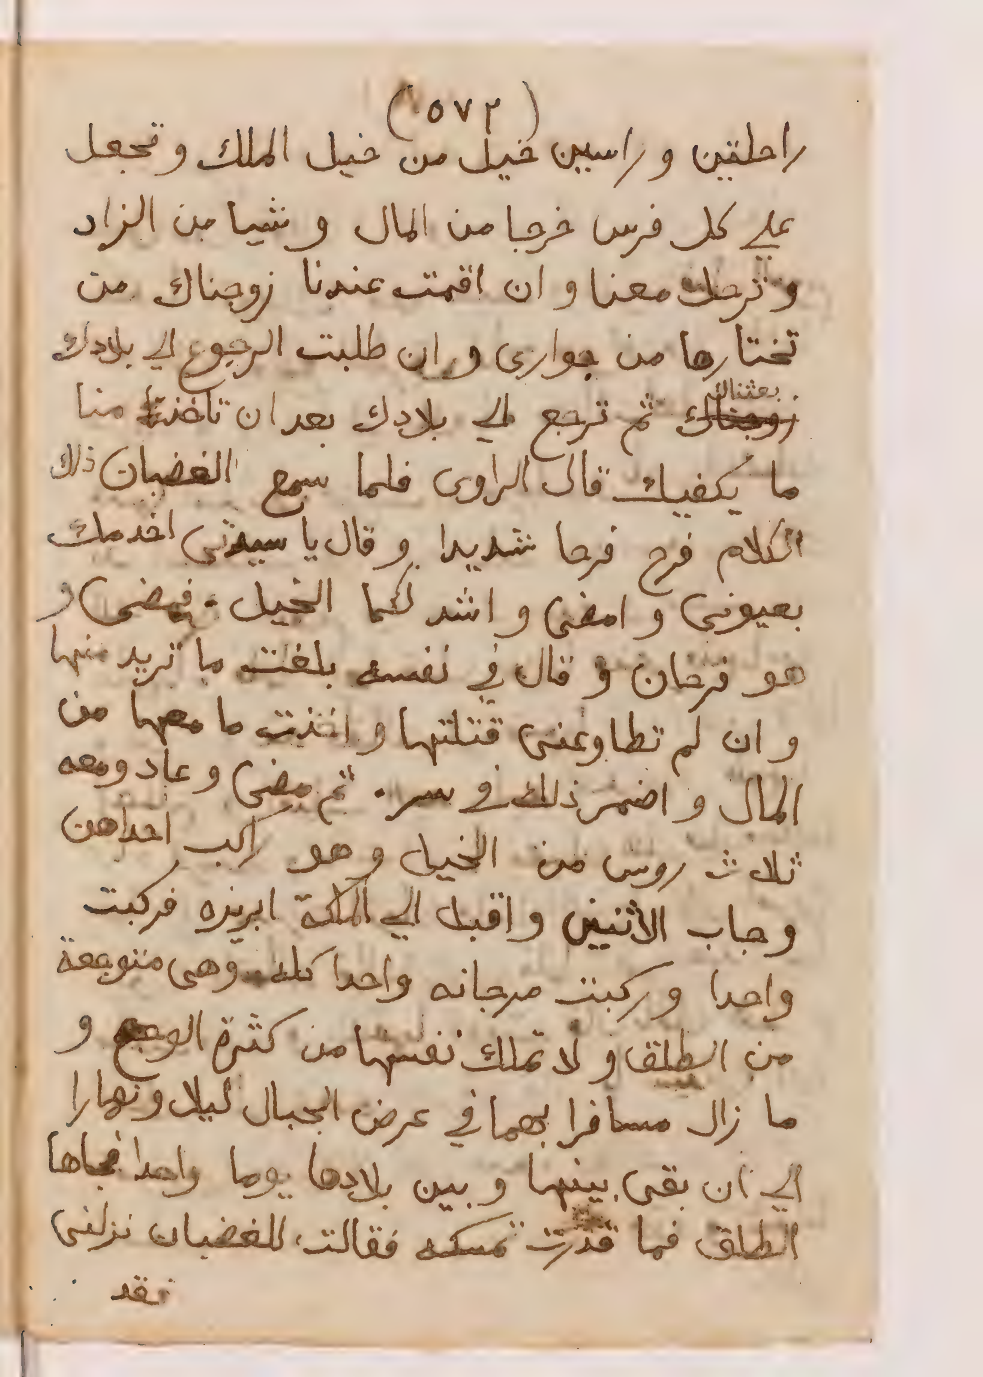 (٥٧٢)
راحلتين و راسين خيل من خيل الملك و تجعل
علي كل فرس خرجا من المال و شيا من الزاد
و ترحل معنا و ان اقمت عندنا زوجناك من
تختارها من جواري و ان طلبت الرجوع الي بلادك
بعثناك
زوجناك ثم ترجع الي بلادك بعد ان تاخذ منا
ما يكفيك قال الراوى فلما سمع الغضبان ذلك
الكلام فرح فرحا شديدا و قال يا سيدتى اخدمك
بعيونى و امضى و اشد لكما الخيل . فمضى و
هو فرحان و قال في نفسه بلغت ما تريد منها
و ان لم تطاوعنى قتلتها و اخذت ما معها من
المال و اضمر ذلك فى سر . ثم مضى و عاد ومعه
ثلاث روس من الخيل و هو راكب احداهن
و جاب الاثنين و اقبل الي الملكة ابريزه فركبت
واحدا و ركبت مرجانه واحدا كله وهى متوجعة
من الطلق و لا تملك نفسها من كثرة الوجع و
ما زال مسافرا بهما في عرض الجبال ليلا و نهارا
الي ان بقى بينها و بين بلادها يوما واحدا فجاها
الطلق فما قدرت تمسكه فقالت للغضبان نزلنى
فقد